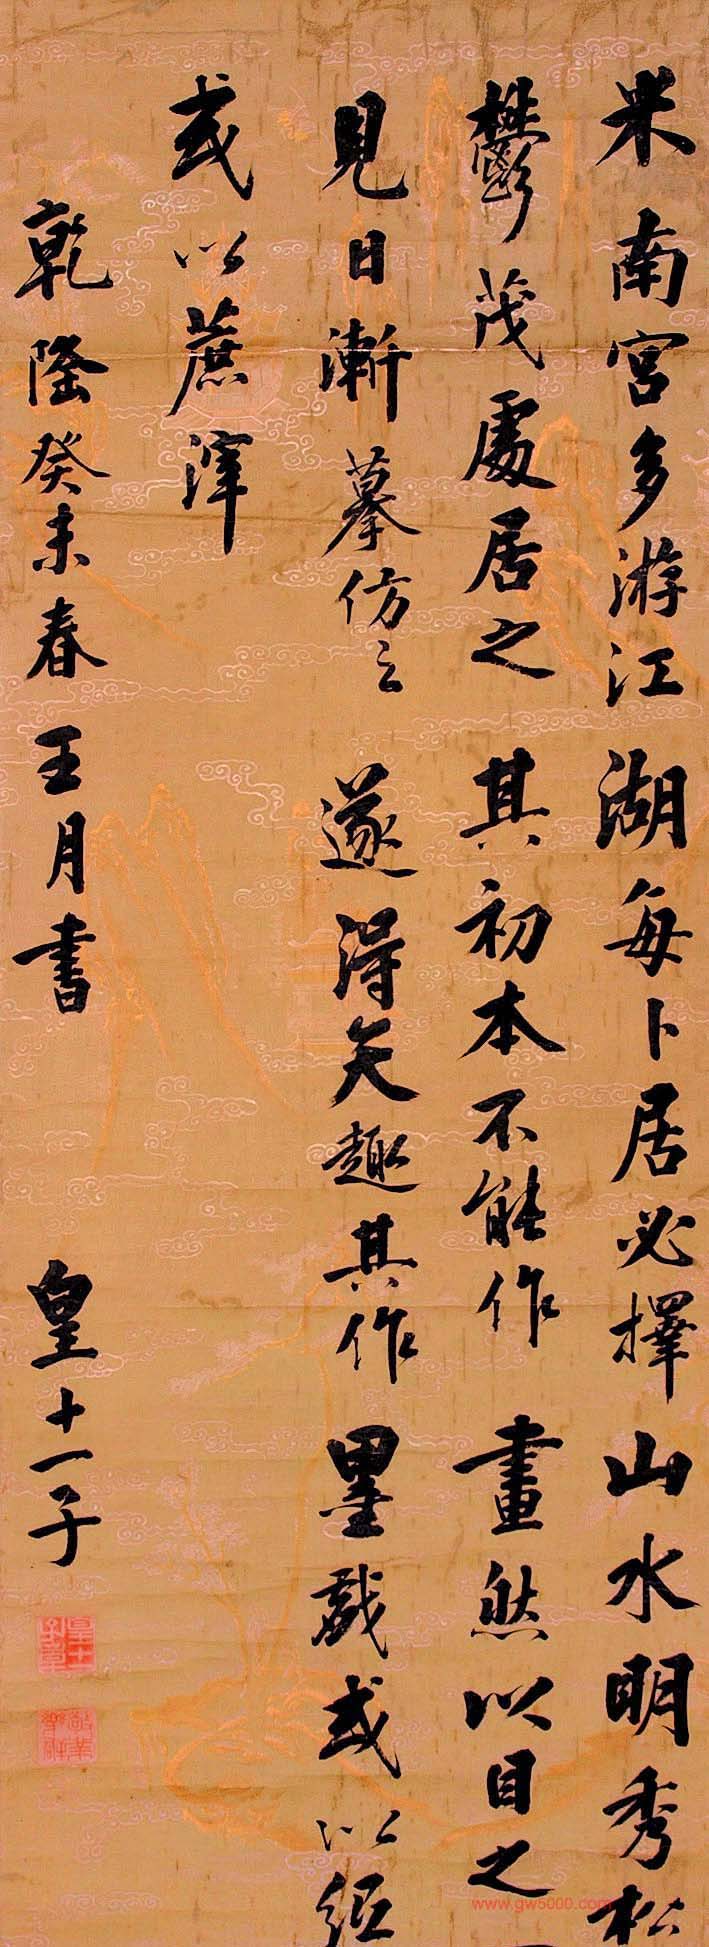 米南宮多游江湖每卜居必擇山水明秀松
鬱茂處居之其初本不能作畫然以目之
見日漸摹仿之遂得天趣其作墨戲或以紙
或以蔗滓
乾隆癸未春王月書
皇十一子
www.gw5000.com